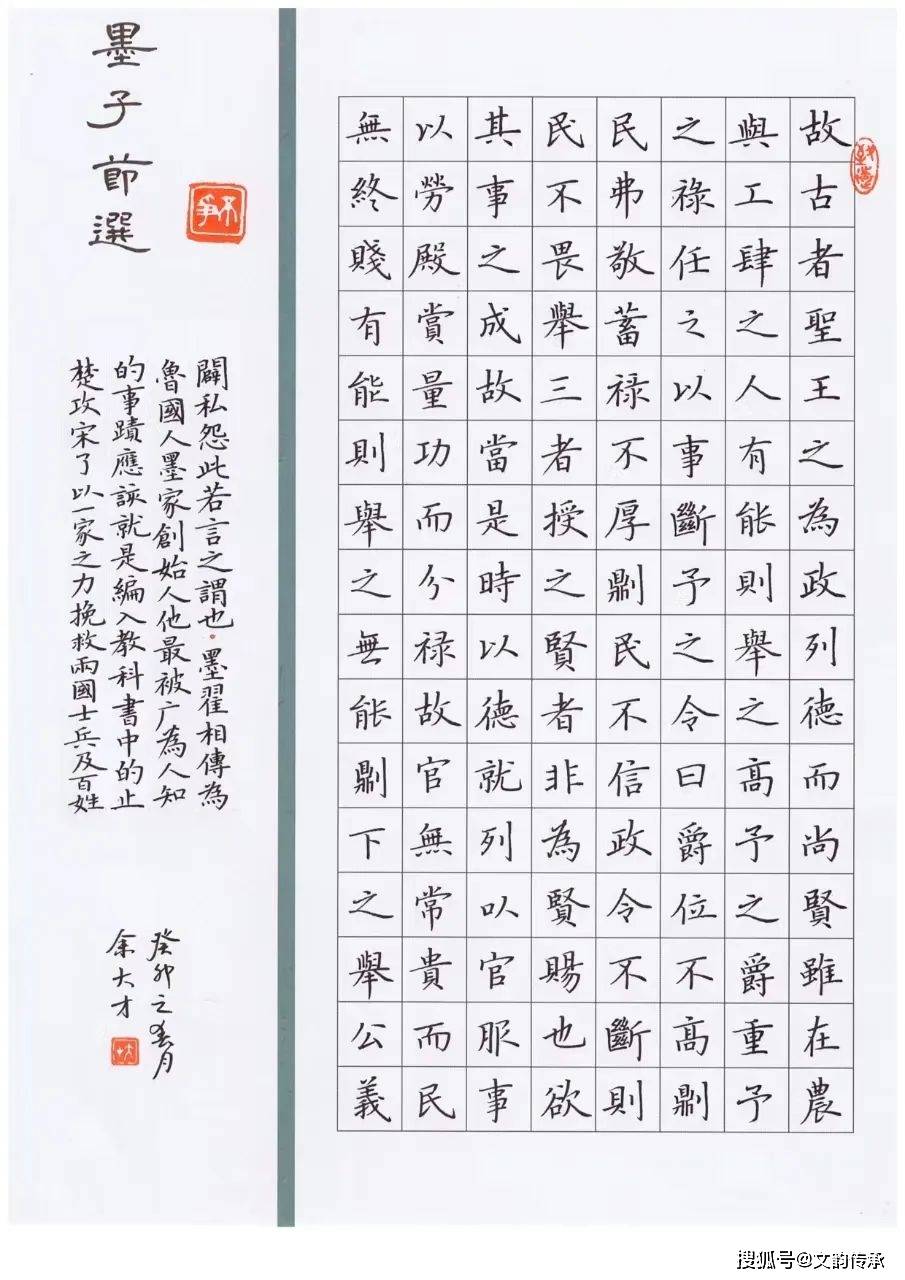 故古者聖王之為政列德而尚賢雖在農
與工肆之人有能則舉之高予之爵重予
之祿任之以事斷予之令曰爵位不高則
民弗敬蓄祿不厚則民不信政令不斷則
民不畏舉三者授之賢者非為賢賜也欲
其事之成故當是時以德就列以官服事
以勞殿賞量功而分祿故官無常貴而民
無終賤有能則舉之無能則下之舉公義
墨子節選
闢私怨此若言之謂也·墨翟相傳為
魯國人墨家創始人他最被广為人知
的事蹟應該就是編入教科書中的止
楚攻宋了以一家之力挽救兩國士兵及百姓
癸卯之春月
余大才
搜狐号@文韵传承